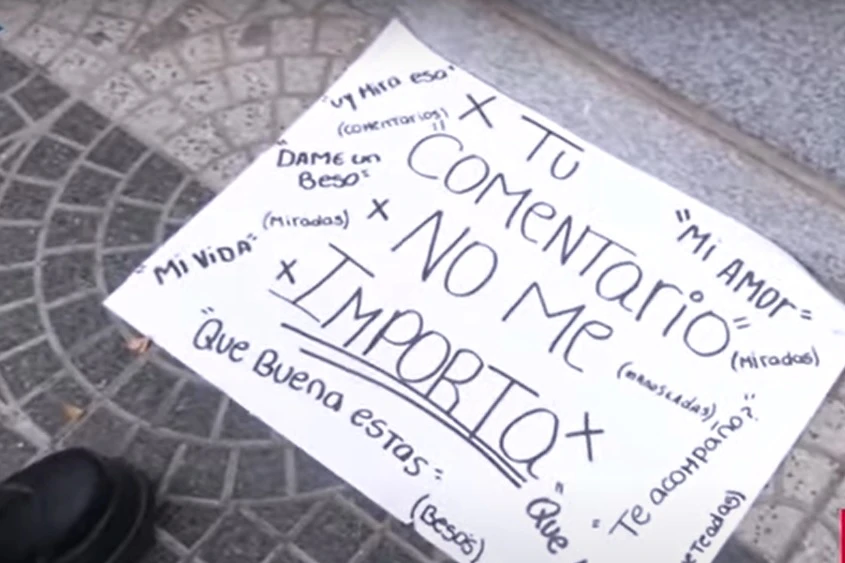 "uy Mira eso"
(COMENTARIOS)
"DAME un
Beso"
(Miradas)
"MI VIDA"
x TU
"COMENTARIO"
x NO ME
x IMPORTA x
"MI AMOR"
(Miradas)
"Te acompaño?"
"QUE BUENA ESTAS"
(Besos)
"QUE